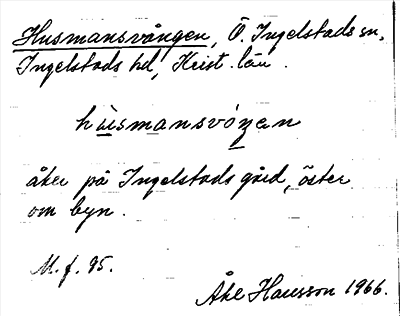 Husmansvången, Ö. Ingelstads sn,
Ingelstads hd, Krist. län.
hùsmansvóŋen
åker på Ingelstads gård, öster
om byn.
M. f. 95.
Åke Hansson 1966.